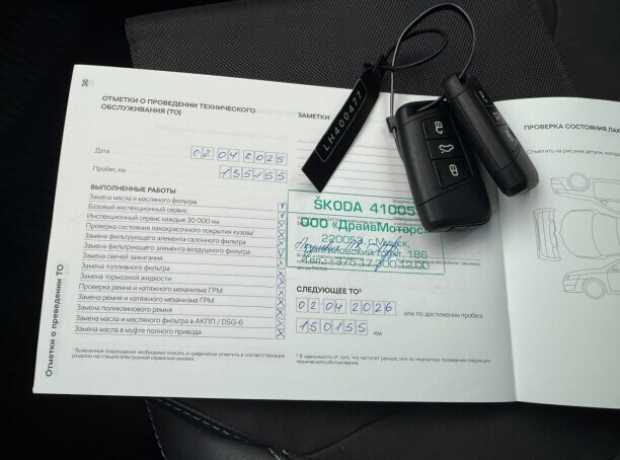 36
ОТМЕТКИ О ПРОВЕДЕНИИ ТЕХНИЧЕСКОГО
ОБСЛУЖИВАНИЯ (ТО)
Дата 02 04 2025
Пробег, км 135155
ВЫПОЛНЕННЫЕ РАБОТЫ
Замена масла и масляного фильтра
Базовый инспекционный сервис
Инспекционный сервис каждые 30 000 км
Проверка состояния лакокрасочного покрытия кузова
Замена фильтрующего элемента салонного фильтра
Замена фильтрующего элемента воздушного фильтра
Замена свечей зажигания
Замена топливного фильтра
Замена тормозной жидкости
Проверка ремня и натяжного механизма ГРМ
Замена ремня и натяжного механизма ГРМ
Замена поликлинового ремня
Замена масла и масляного фильтра в АКПП / DSG-6
Замена масла в муфте полного привода
Отметки о проведении ТО
ЗАМЕТКИ
LH400477
ŠKODA 41005
ООО «ДрайвМоторс»
220056, г. Минск,
186
СЛЕДУЮЩЕЕ ТО
02 04 2026 или по достижении пробега
150155 км
ПРОВЕРКА СОСТОЯНИЯ ЛАК
Отметить на рисунке детали, которые